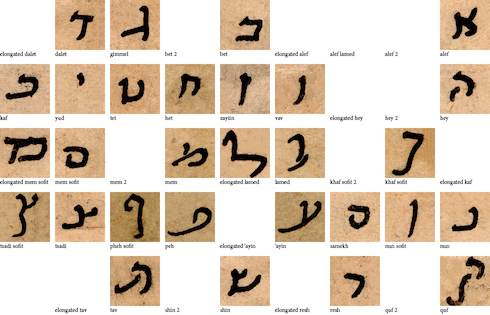 א ב ג ד
elongated dalet dalet gimmel bet 2 bet elongated alef alef lamed alef 2 alef
ה ו ז ח ט י כ
kaf yud tet het zayin vav elongated hey hey 2 hey
ך ל ל מ ם ם
elongated mem sofit mem sofit mem 2 mem elongated lamed lamed khaf sofit 2 khaf sofit elongated kaf
נ ן ס ע פ ף צ ץ
tsadi sofit tsadi pheh sofit peh elongated 'ayin 'ayin samekh nun sofit nun
ק ר ש ת
elongated tav tav shin 2 shin elongated resh resh quf 2 quf